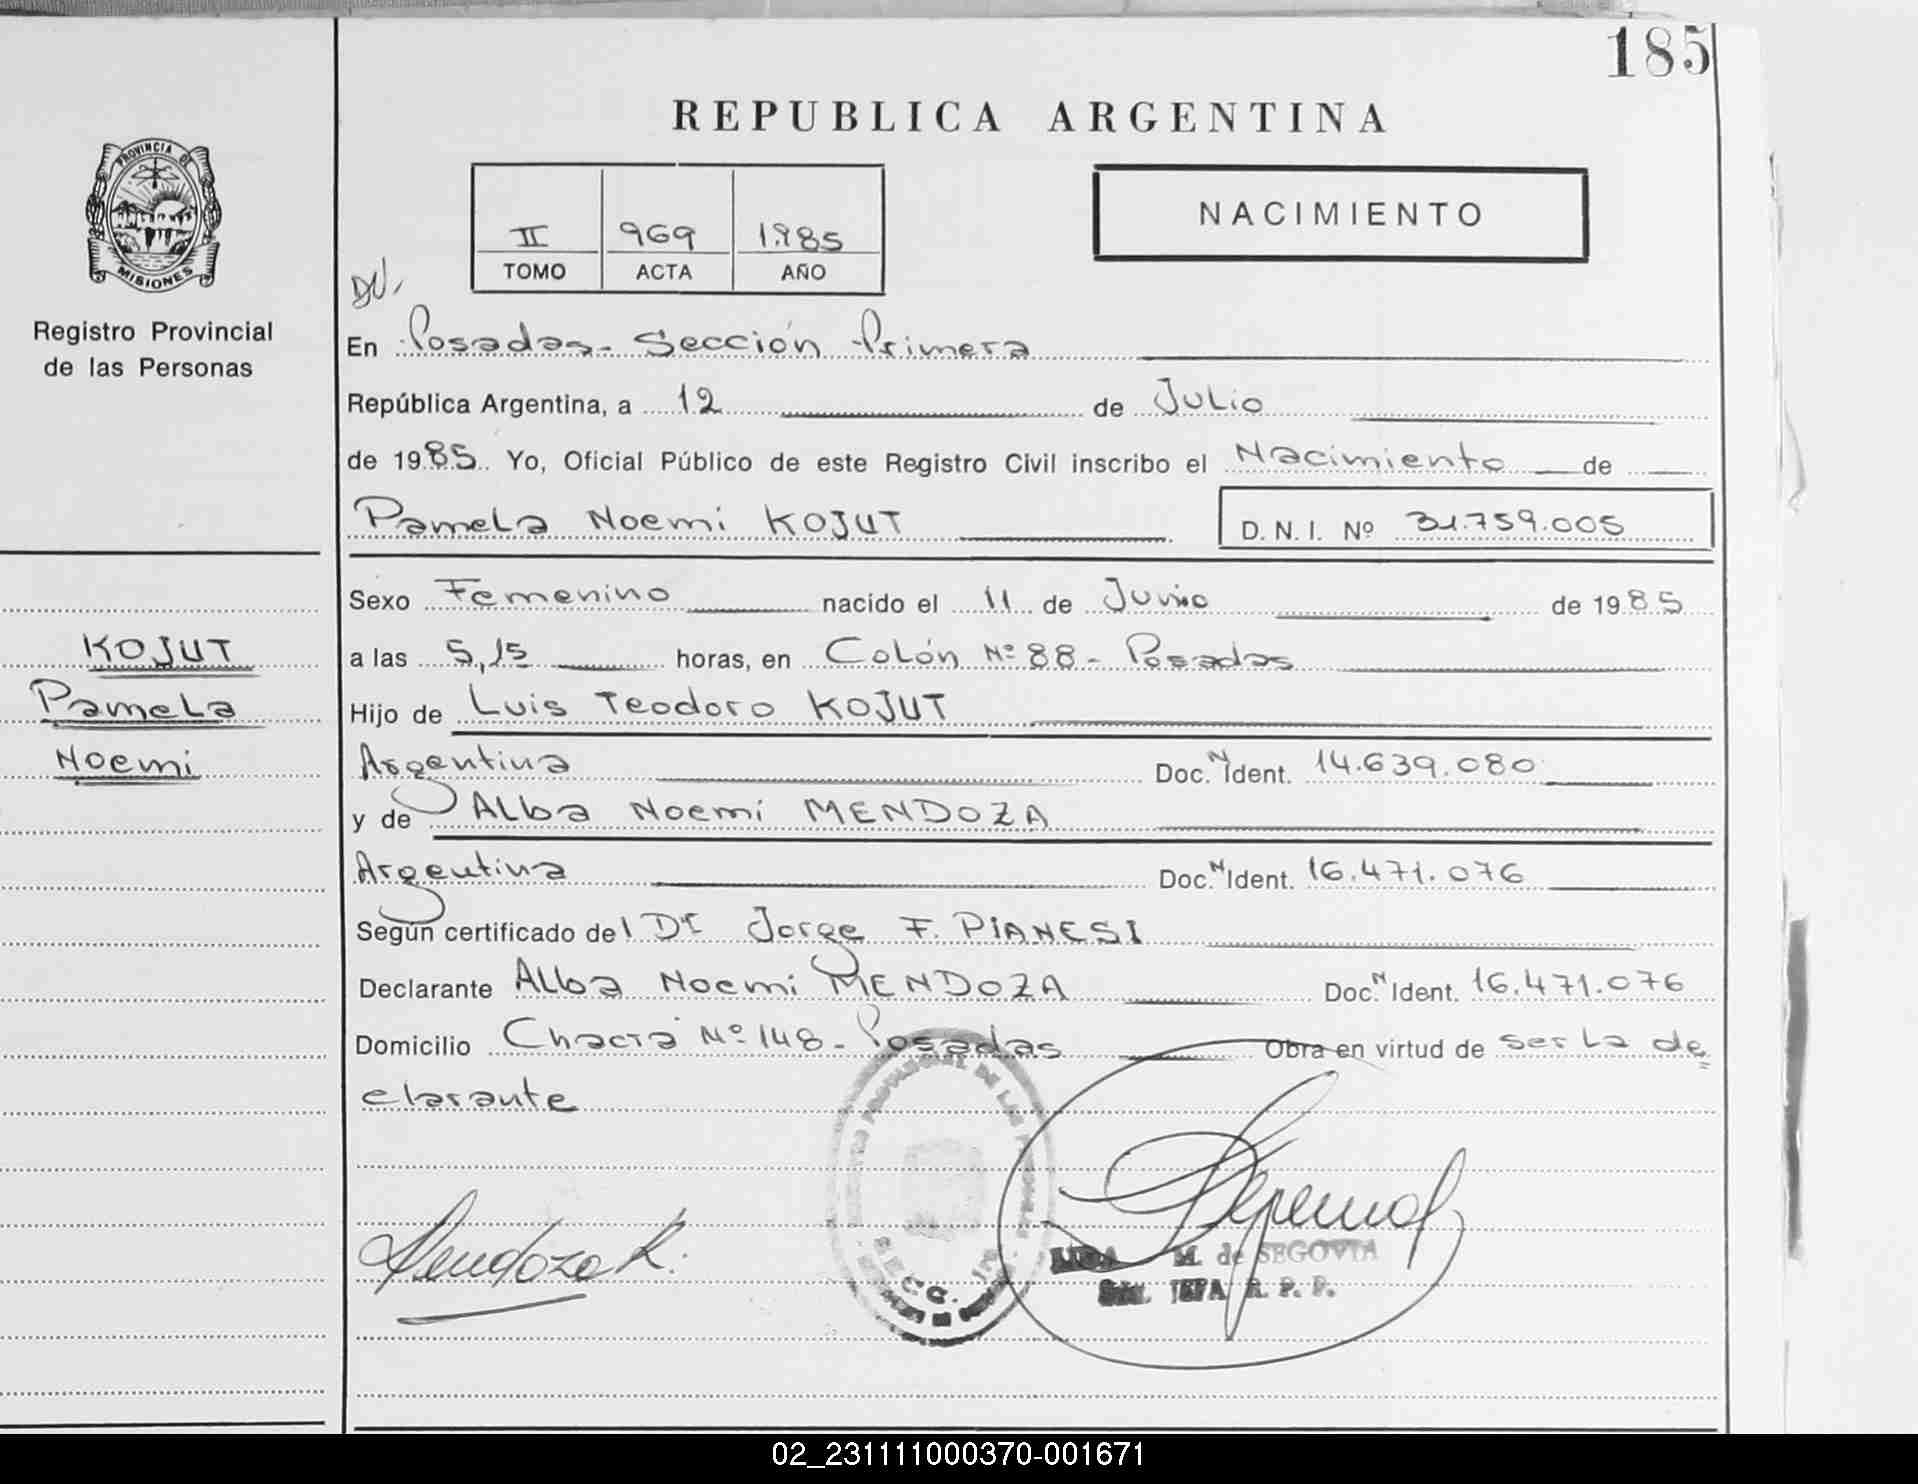 185
REPUBLICA ARGENTINA
PROVINCIA DE
MISIONES
Registro Provincial
de las Personas
II 969 1.985
TOMO ACTA AÑO
NACIMIENTO
En Posadas- Sección Primera
República Argentina, a 12 de Julio
de 1985. Yo, Oficial Público de este Registro Civil inscribo el Nacimiento de
Pamela Noemi KOJUT D. N. I. Nº 31.759.005
Sexo Femenino nacido el 11 de Junio de 1985
KOJUT
a las 5,15 horas, en Colón Nº 88- Posadas
Pamela
Hijo de Luis Teodoro KOJUT
Noemi
Argentina Doc. N Ident. 14.639.080
y de Alba Noemí MENDOZA
Argentina Doc. N Ident. 16.471.076
Según certificado del Dr Jorge F. PIANESI
Declarante Alba Noemi MENDOZA Doc. N Ident. 16.471.076
Domicilio Chacra Nº 148- Posadas Obra en virtud de ser la de=
clarante
Mendoza
M. de SEGOVIA
JEFA R. P. P.
02_231111000370-001671